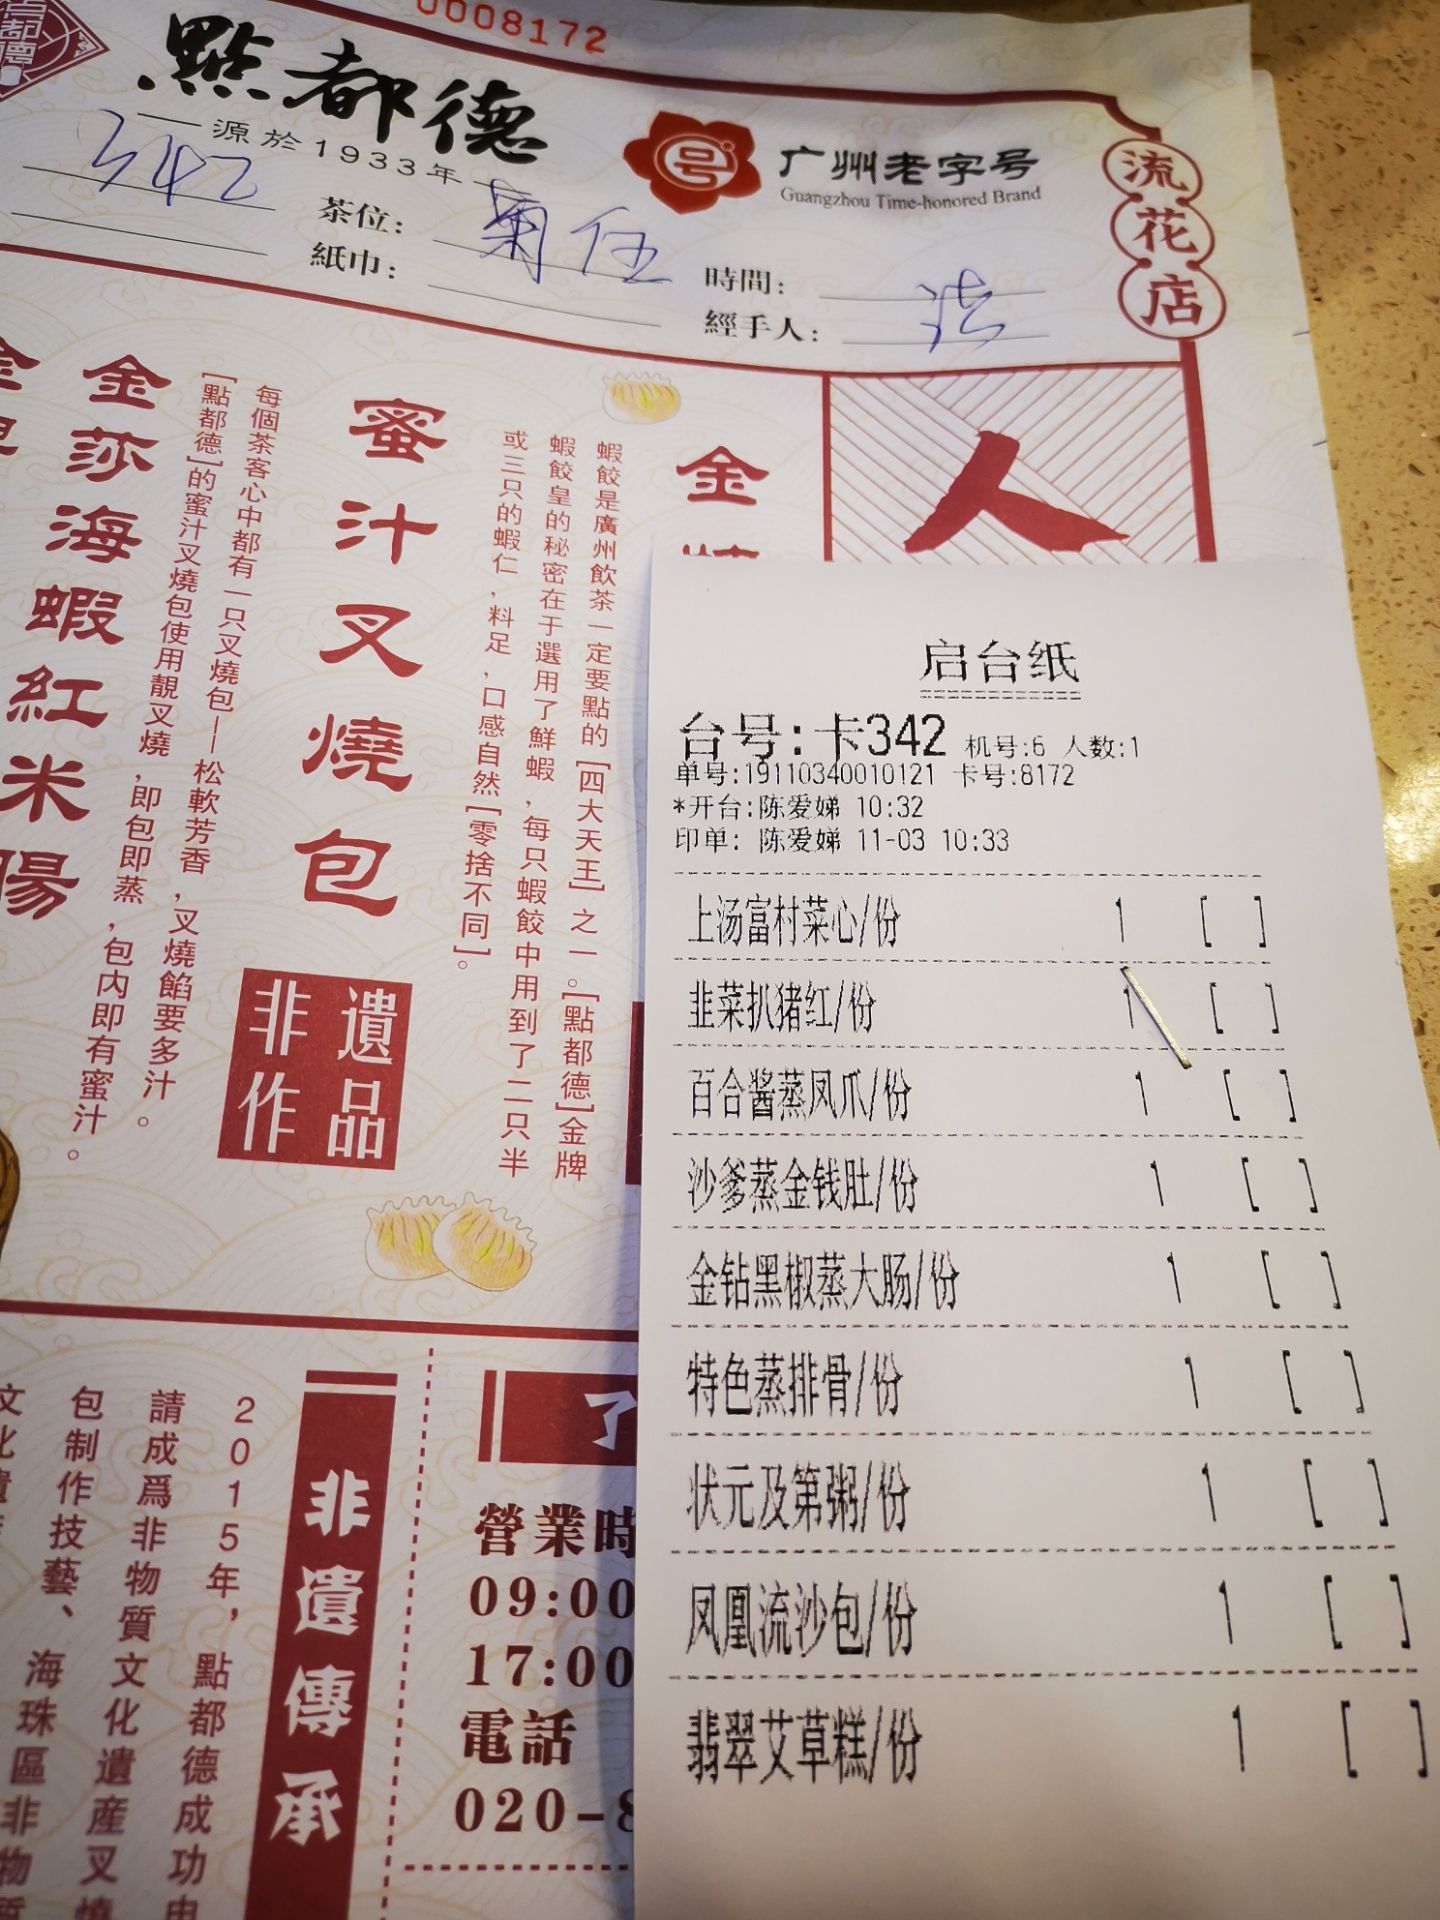 0008172
點都德
源於1933年
广州老字号
Guangzhou Time-honored Brand
流花店
342
茶位：菊 伍
紙巾：
時間：
經手人：
人
金
蝦餃是廣州飲茶一定要點的[四大天王]之一。[點都德]金牌
蝦餃皇的秘密在于選用了鮮蝦，每只蝦餃中用到了二只半
或三只的蝦仁，料足，口感自然[零捨不同]。
蜜汁叉燒包
非遺作品
每個茶客心中都有一只叉燒包——松軟芳香，叉燒餡要多汁。
[點都德]的蜜汁叉燒包使用靚叉燒，即包即蒸，包内即有蜜汁。
金莎海蝦紅米腸
了
營業時
09:00
17:00
電話
020-8
非遺傳承
2015年，點都德成功申
請成爲非物質文化遺産叉燒
包制作技藝、海珠區非物質
启台纸
台号:卡342 机号:6 人数:1
单号:19110340010121 卡号:8172
*开台:陈爱娣 10:32
印单: 陈爱娣 11-03 10:33
上汤富村菜心/份 1 [ ]
韭菜扒猪红/份 1 [ ]
百合酱蒸凤爪/份 1 [ ]
沙爹蒸金钱肚/份 1 [ ]
金钻黑椒蒸大肠/份 1 [ ]
特色蒸排骨/份 1 [ ]
状元及第粥/份 1 [ ]
凤凰流沙包/份 1 [ ]
翡翠艾草糕/份 1 [ ]